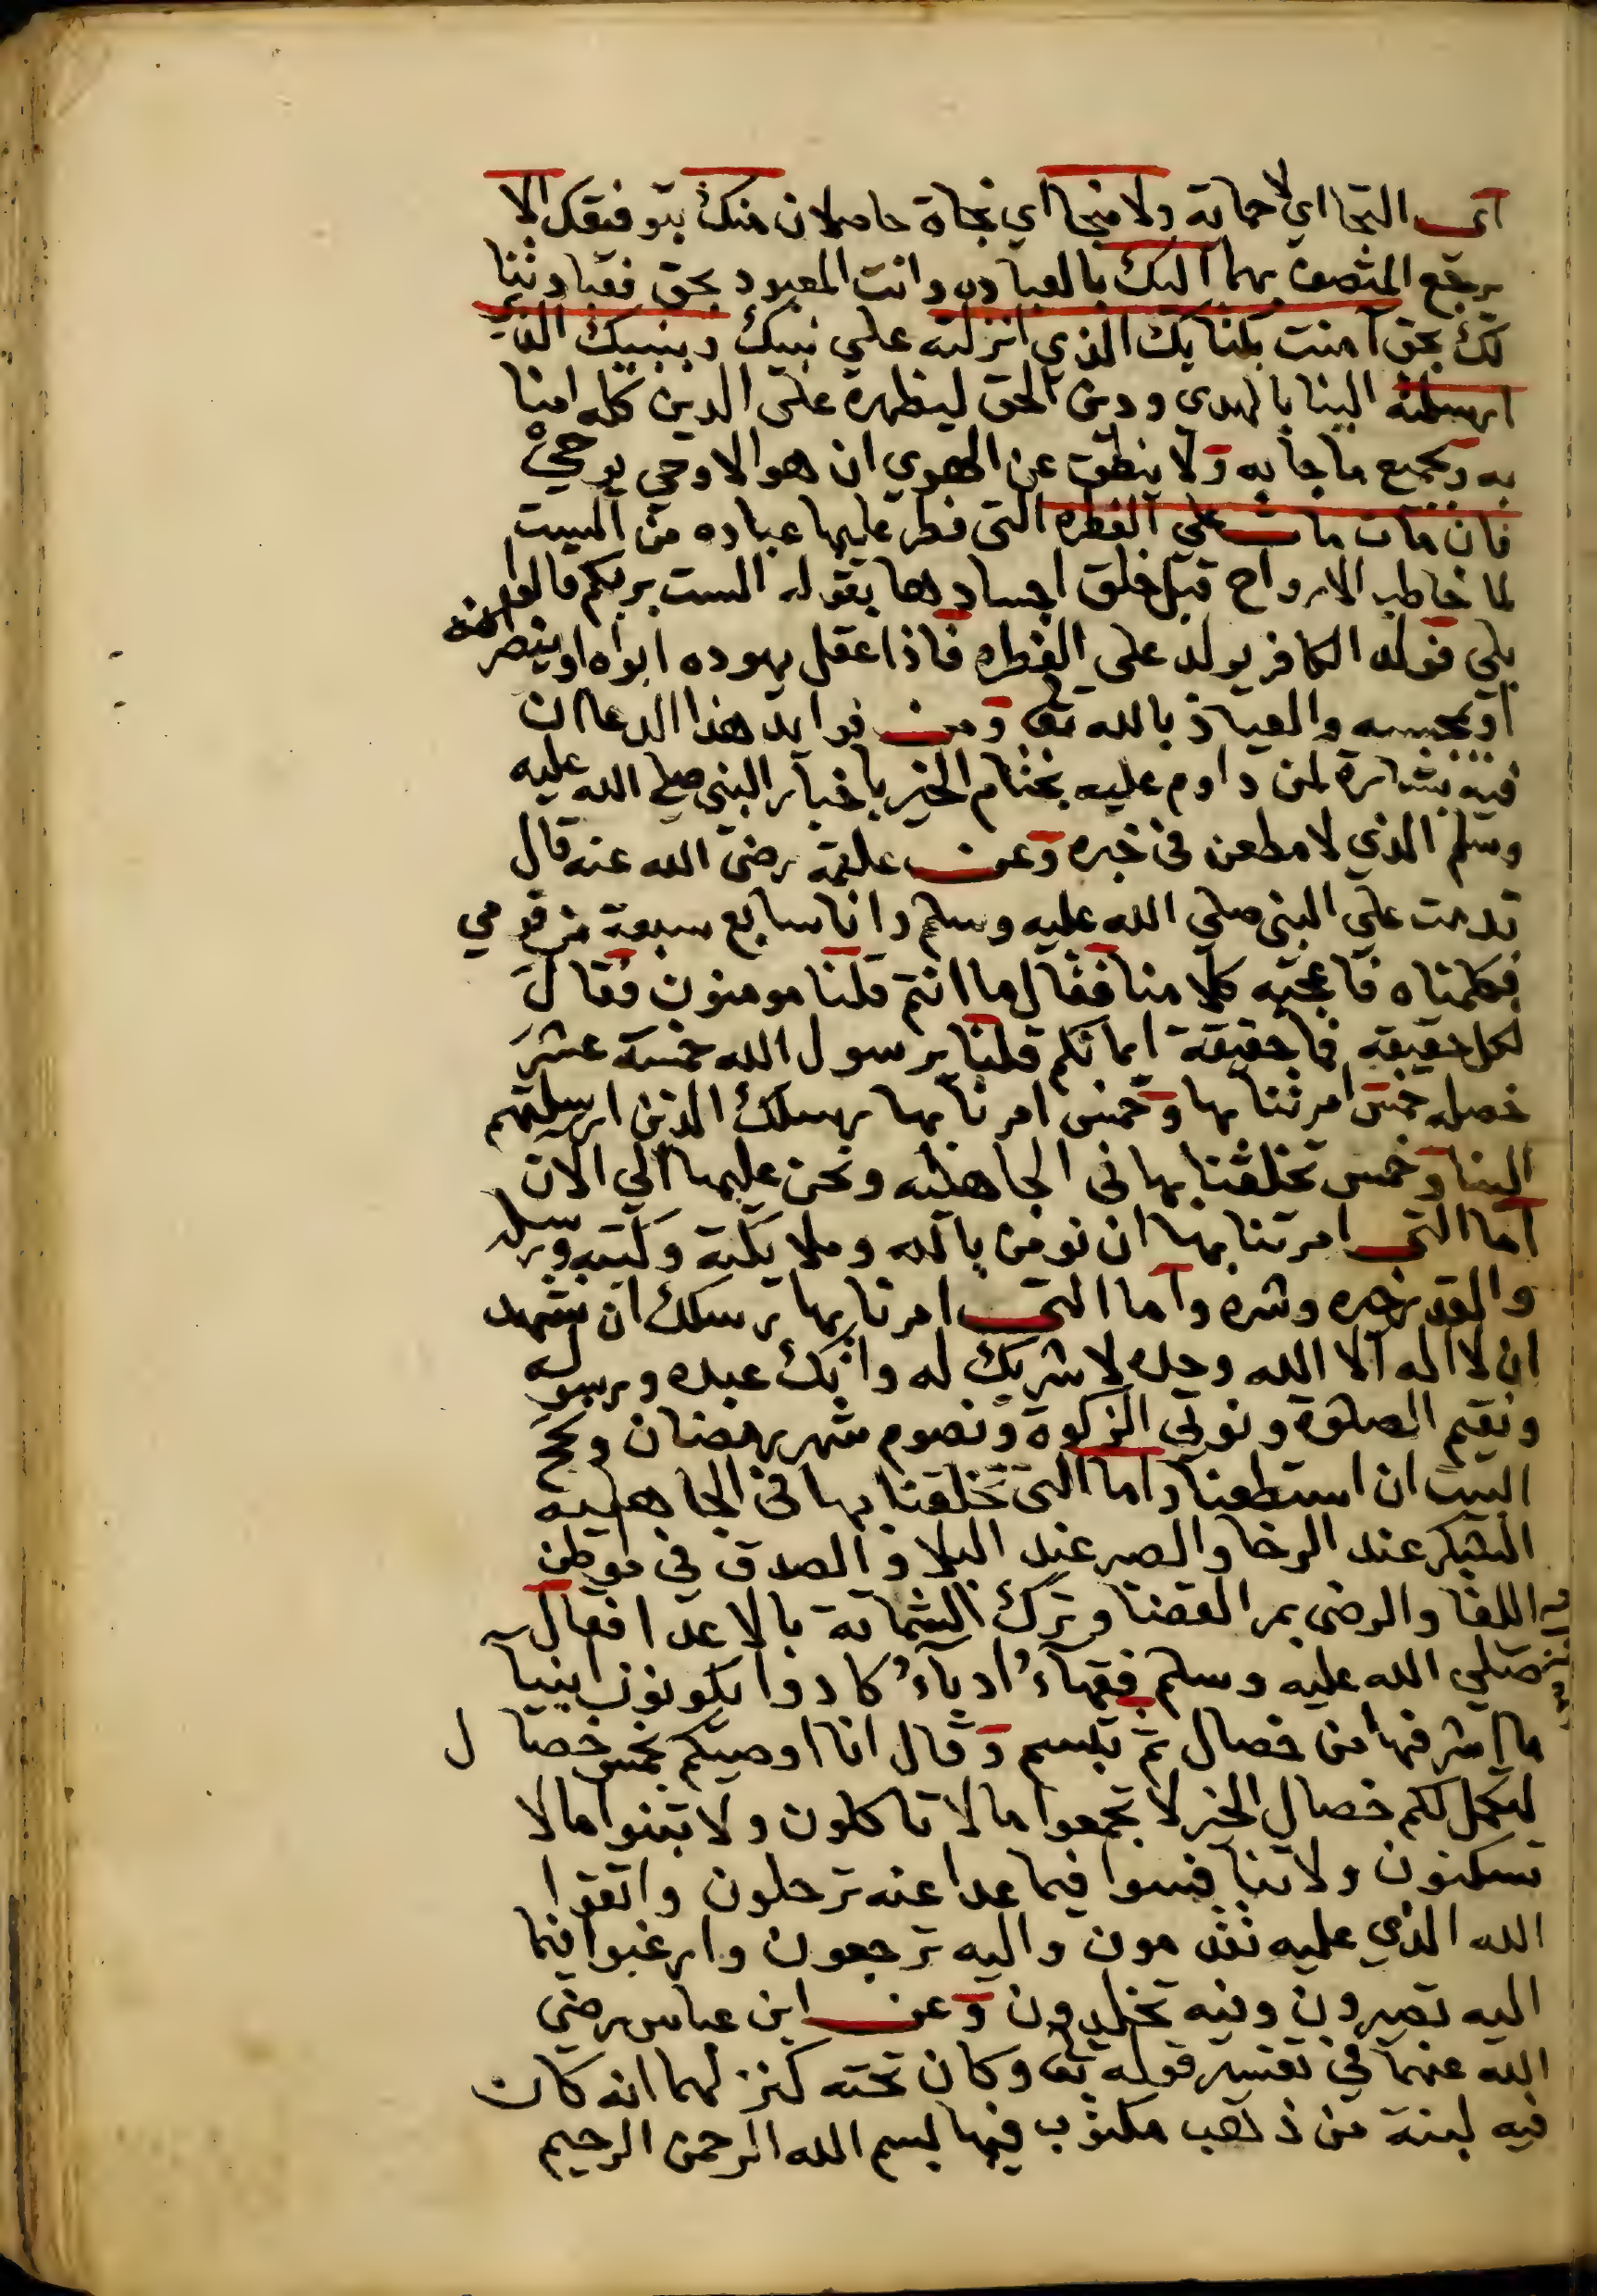 اى التجا اي لا حماية ولا منجا اي نجاة حاصلان منك بتوفيقك الا
يرجع المتصف بهما اليك بالعباده وانت المعبود بحق فعبادتنا
لك بحق آمنت بكتابك الذي انزلته علي نبيك وبنبيك الذي
ارسلته الينا بالهدي ودين الحق ليظهره على الدين كله امنا
به وبجميع ما جا به ولا ينطق عن الهوي ان هو الا وحي يوحي
فان مات مات علي الفطره التى فطر عليها عباده من
لما خاطب الارواح قبل خلق اجسادها بقوله الست بربكم قالوا
بلي فولد الكافر يولد على الفطره فاذا عقل يهوده ابواه او ينصرانه
او يمجسه والعياذ بالله تعا ومن فوايد هذا الدعا ان
فيه بشارة لمن داوم عليه بختام الخير باخبار النبى صلى الله عليه
وسلم الذي لا مطعن فى خبره وعن علقمة رضى الله عنه قال
قدمت علي النبى صلي الله عليه وسلم وانا سابع سبعة من قومي
فكلمناه فاعجبه كلامنا فقال ما انتم قلنا مومنون فقال
لكل حقيقة فما حقيقة ايمانكم قلنا يرسول الله خمسة عشر
خصله خمس امرتنا بها وخمس امرنا بها رسلك الذين ارسلتهم
الينا وخمس تخلقنا بها فى الجاهليه ونحن عليها الي الان
اما التى امرتنا بها ان نومن بالله وملايكته وكتبه ورسله
والقدر خيره وشره واما التى امرنا بها رسلك ان نشهد
ان لا اله الا الله وحده لا شريك له وانك عبده ورسوله
ونقيم الصلوة ونوتي الزكوة ونصوم شهر رمضان ونحج
البيت ان استطعنا واما التى تخلقنا بها فى الجاهلية
الشكر عند الرخا والصبر عند البلا والصدق في موطن
اللقا والرضى بمر القضا وترك الشماتة بالاعدا فقال
صلي الله عليه وسلم فقهآء ادبآء كادوا يكونون انبيآ
ما اشرفها من خصال ثم تبسم وقال انا اوصيكم بخمس خصال
ليكمل لكم خصال الخير لا تجمعوا ما لا تاكلون ولا تبنوا ما لا
تسكنون ولا تنافسوا فيما عدا عنه ترحلون واتقوا
الله الذي عليه تقدمون واليه ترجعون وارغبوا فيما
اليه تصيرون وفيه تخلدون وعن ابن عباس رضى
الله عنهما في تفسير قوله تعا وكان تحته كنز لهما انه كان
فيه لبنة من ذهب مكتوب فيها بسم الله الرحمن الرحيم